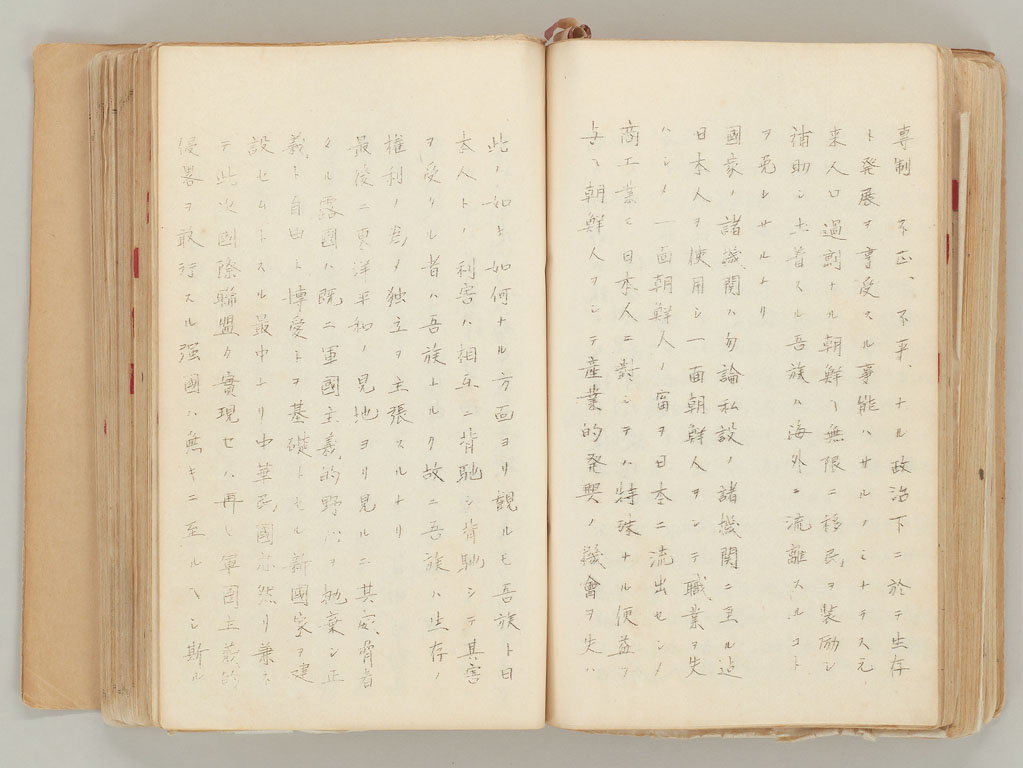 専制 不正、不平、ナル政治下ニ於テ生存
ト発展ヲ享受スル事能ハサルノミナラス元
来人口過剰ナル朝鮮ヘ無限ニ移民ヲ装励シ
補助シ土着スル吾族ハ海外ニ流離スルコト
ヲ免レサルナリ
國家ノ諸機関ハ勿論私設ノ諸機関ニ至ル迄
日本人ヲ使用シ一面朝鮮人ヲシテ職業ヲ失
ハシメ一面朝鮮人ノ富ヲ日本ニ流出セシメ
商工業ハ日本人ニ對シテハ特殊ナル便益ヲ
与ヘ朝鮮人ヲシテ産業的発興ノ機會ヲ失ハ
此ノ如ク如何ナル方面ヨリ観ルモ吾族ト日
本人トノ利害ハ相互ニ背馳シ背馳シテ其害
ヲ受クル者ハ吾族トルリ故ニ吾族ハ生存ノ
権利ノ為メ独立ヲ主張スルナリ
最後ニ東洋平和ノ見地ヨリ見ルニ其威脅者
タル露國ハ既ニ軍國主義的野心ヲ抛棄シ正
義ト自由ト博愛トヲ基礎トセル新國家ヲ建
設セムトスル最中ナリ中華民國亦然リ兼ネ
テ此次國際聯盟ク實現セハ再ヒ軍国主義的
侵畧ヲ敢行スル强國ハ無キニ至ルヘシ斯ル